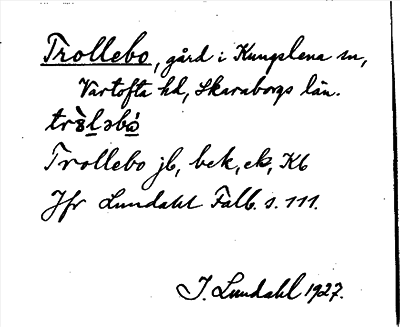 Trollebo, gård i Kungslena sn,
Vartofta hd, Skaraborgs län.
Trollebo jb, bek, ek, Kb
Jfr Lundahl Falb. s. 111.
I. Lundahl 1927.